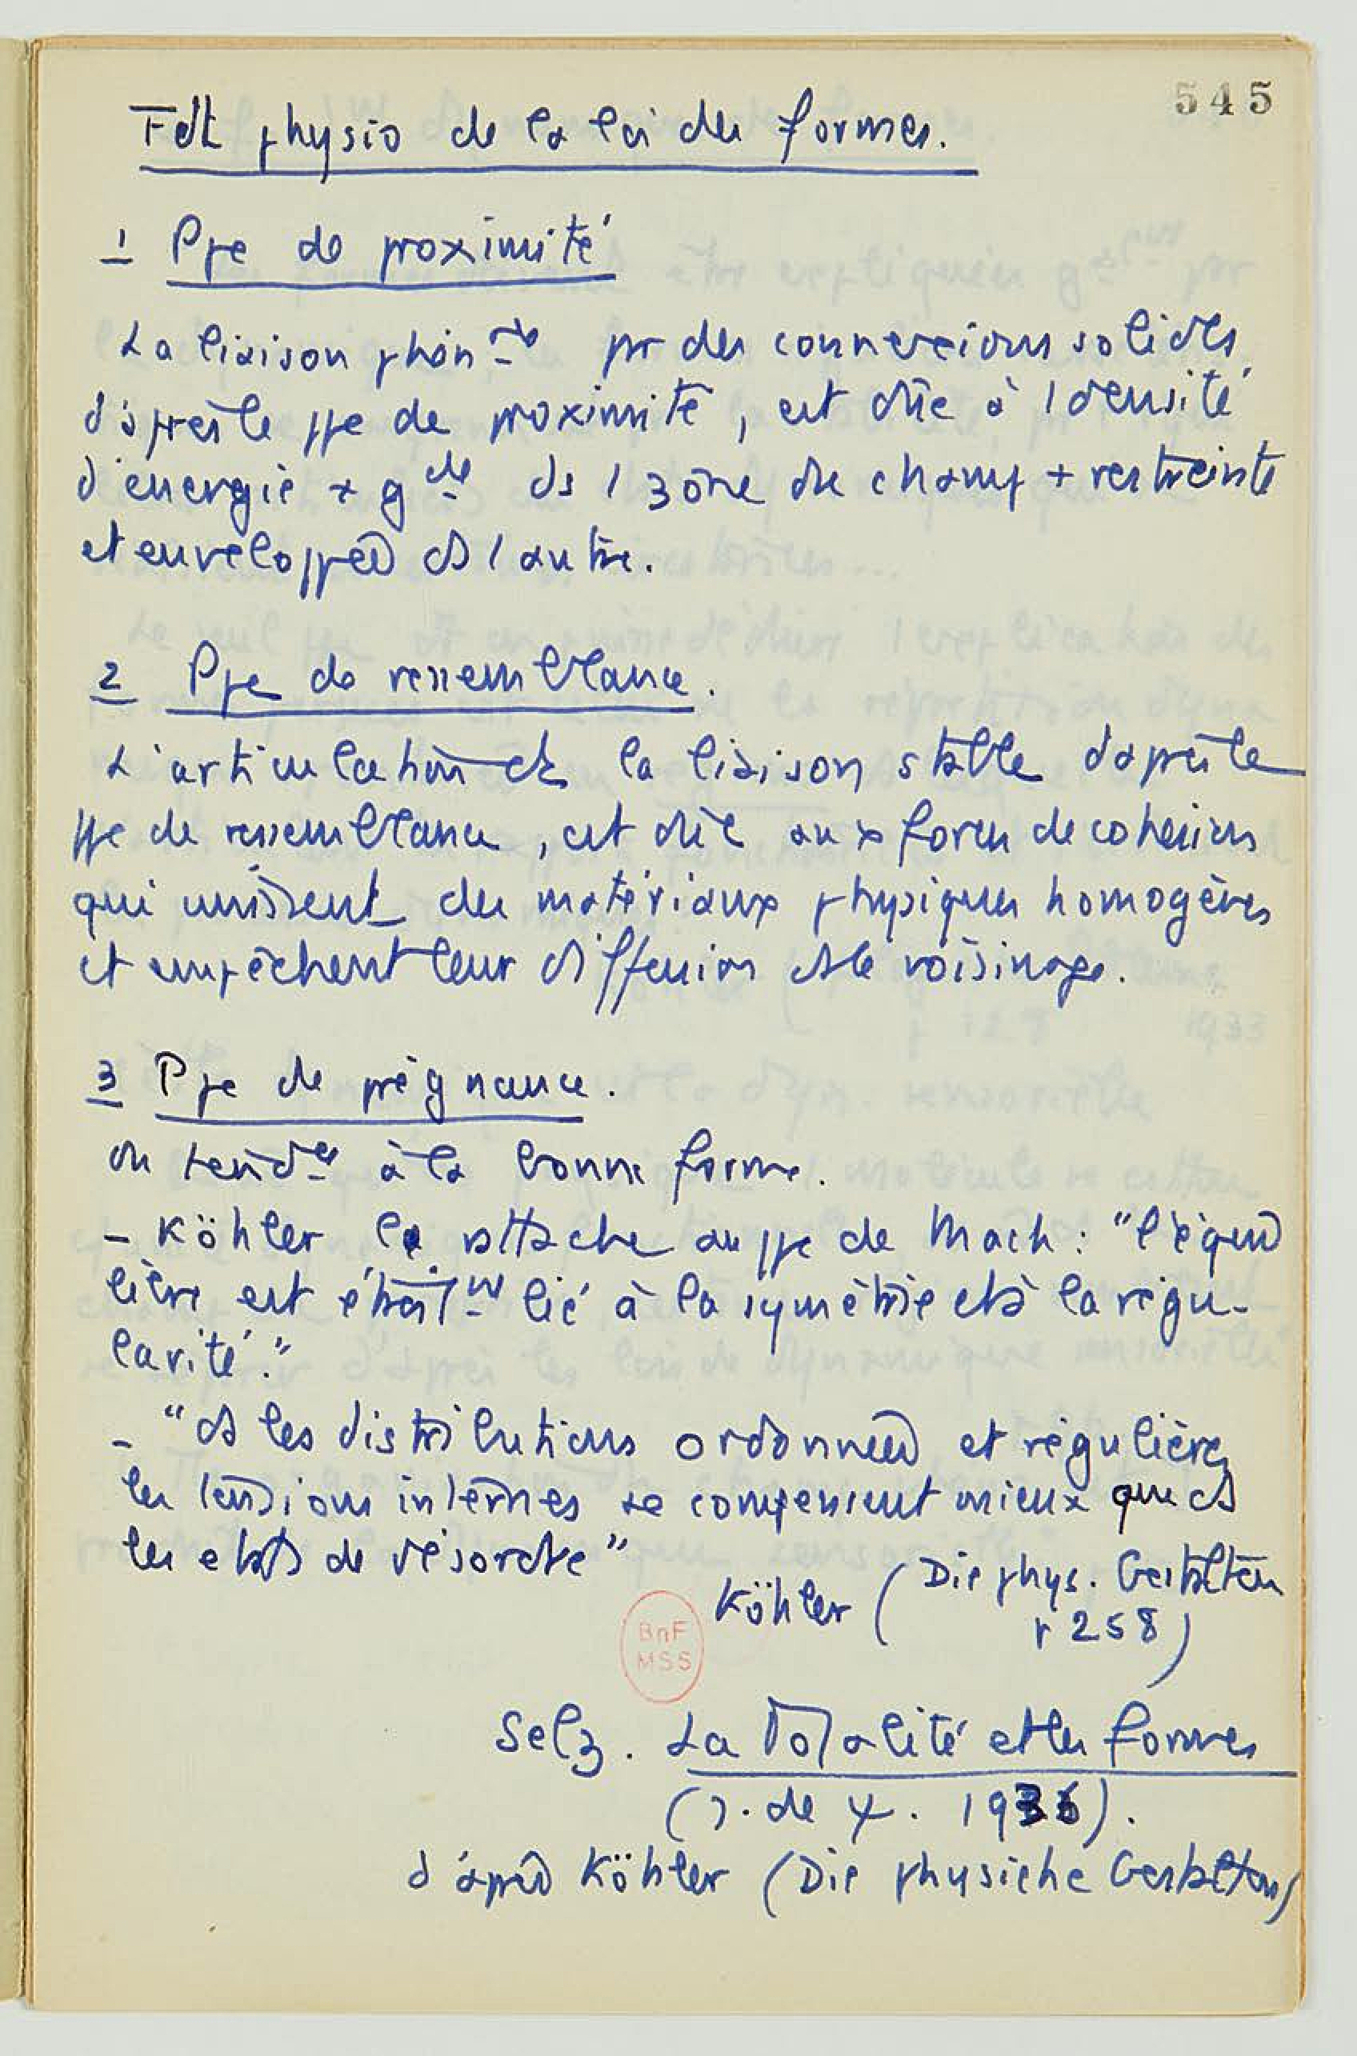 545
Fdt physio de la loi des formes.
1 Ppe de proximité
La liaison phén_le pr des connexions solides,
d'après le ppe de proximité, est dûe à 1 densité
d'énergie + gde ds 1 zône de champ + restreinte
et enveloppée ds l autre.
2 Ppe de ressemblance.
L'articulation et la liaison stable d'après le
ppe de ressemblance, est dûe aux forces de cohésions
qui unissent des matériaux physiques homogènes
et empêchent leur diffusion ds le voisinage.
3 Ppe de prégnance.
ou tendce à la bonne forme.
- Köhler le rattache au ppe de Mach : "l'équi
libre est étroitmt lié à la symétrie et à la régu-
larité."
- "ds les distributions ordonnées et régulières
les tensions internes se compensent mieux que ds
les etats de désordre"
Köhler (Die phys. Gestalten
p 258)
BnF
MSS
Selz. La Totalité et les formes
(J. de ψ. 1936).
d'après Köhler (Die physiche Gestalten)